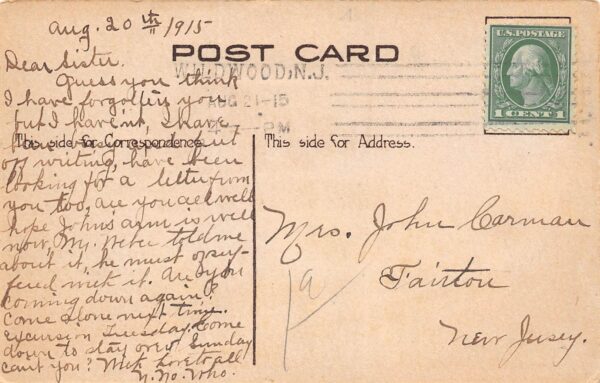 Aug. 20th 1915
POST CARD
U.S. POSTAGE
1 CENT 1
WILDWOOD, N.J.
AUG 21-15
PM
Dear Sister.
Guess you think
I have forgotten you
but I havent, I have
put
off writing, have been
looking for a letter from
you too, are you all well
hope Johns arm is well
now, Mr. told me
about it, he must of suf-
fered with it. Are you
coming down again?
Come alone next time.
excursion Tuesday. Come
down to stay over Sunday
cant you? With love to all
U. No. Who.
This side for Correspondence.
This side for Address.
Mrs. John Carman
Fairton
New Jersey.